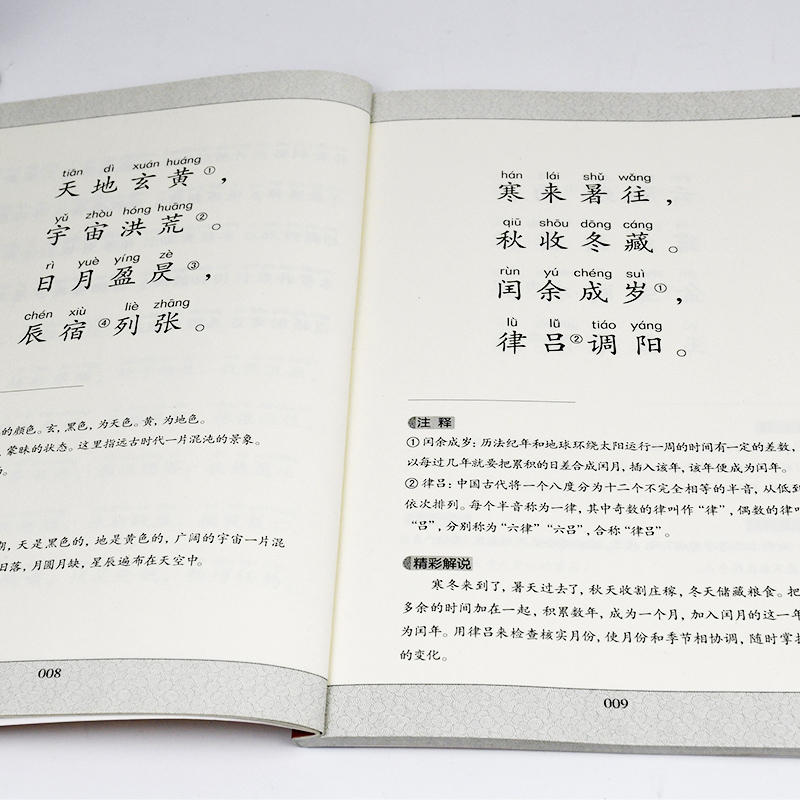 tiān dì xuán huáng
天地玄黄①，
yǔ zhòu hóng huāng
宇宙洪荒②。
rì yuè yíng zè
日月盈昃③，
chén xiù liè zhāng
辰宿④列张。
的颜色。玄，黑色，为天色。黄，为地色。
蒙昧的状态。这里指远古时代一片混沌的景象。
，天是黑色的，地是黄色的，广阔的宇宙一片混
日落，月圆月缺，星辰遍布在天空中。
008
hán lái shǔ wǎng
寒来暑往，
qiū shōu dōng cáng
秋收冬藏。
rùn yú chéng suì
闰余成岁①，
lǜ lǚ tiáo yáng
律吕②调阳。
注释
①闰余成岁：历法纪年和地球环绕太阳运行一周的时间有一定的差数，
以每过几年就要把累积的日差合成闰月，插入该年，该年便成为闰年。
②律吕：中国古代将一个八度分为十二个不完全相等的半音，从低到
依次排列。每个半音称为一律，其中奇数的律叫作“律”，偶数的律叫
“吕”，分别称为“六律”“六吕”，合称“律吕”。
精彩解说
寒冬来到了，暑天过去了，秋天收割庄稼，冬天储藏粮食。把
多余的时间加在一起，积累数年，成为一个月，加入闰月的这一年
为闰年。用律吕来检查核实月份，使月份和季节相协调，随时掌握
的变化。
009